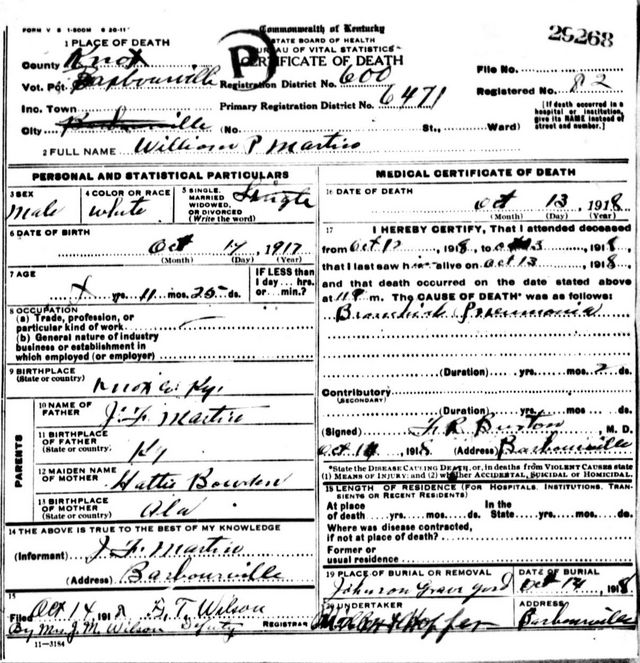 FORM V S 1-500M 6 20-11
Commonwealth of Kentucky
STATE BOARD OF HEALTH
BUREAU OF VITAL STATISTICS
CERTIFICATE OF DEATH
P
29268
1 PLACE OF DEATH
County Knox
Vot. Pct. Barbourville
Inc. Town
City Barbourville (No. St., Ward)
Registration District No. 600
Primary Registration District No. 6471
File No.
Registered No. 82
[If death occurred in a hospital or institution, give its NAME instead of street and number.]
2 FULL NAME William P Martin
PERSONAL AND STATISTICAL PARTICULARS
3 SEX Male
4 COLOR OR RACE White
5 SINGLE, MARRIED WIDOWED, OR DIVORCED (Write the word) Single
6 DATE OF BIRTH Oct 17, 1917
(Month) (Day) (Year)
7 AGE yrs. 11 mos. 25 ds.
IF LESS than 1 day... hrs. or min.?
8 OCCUPATION
(a) Trade, profession, or
particular kind of work
(b) General nature of industry
business or establishment in
which employed (or employer)
9 BIRTHPLACE
(State or country) Knox Co. Ky.
PARENTS
10 NAME OF FATHER J. F. Martin
11 BIRTHPLACE OF FATHER (State or country) Ky
12 MAIDEN NAME OF MOTHER Hattie
13 BIRTHPLACE OF MOTHER (State or country) Ala
14 THE ABOVE IS TRUE TO THE BEST OF MY KNOWLEDGE
(Informant) J. F. Martin
(Address) Barbourville
15
Filed Oct 14 1918 T. Wilson
By Mrs J. M. Wilson Deputy REGISTRAR
11-3184
MEDICAL CERTIFICATE OF DEATH
16 DATE OF DEATH
Oct 13, 1918
(Month) (Day) (Year)
17 I HEREBY CERTIFY, That I attended deceased
from Oct 12, 1918, to Oct 13, 1918,
that I last saw him alive on Oct 13, 1918,
and that death occurred on the date stated above
at 11 P m. The CAUSE OF DEATH* was as follows:
Bronchial Pneumonia
(Duration) yrs. mos. 2 ds.
Contributory
(SECONDARY)
(Duration) yrs. mos. ds.
(Signed) Burton, M. D.
Oct 14, 1918 (Address) Barbourville
*State the DISEASE CAUSING DEATH, or, in deaths from VIOLENT CAUSES state
(1) MEANS OF INJURY; and (2) whether ACCIDENTAL, SUICIDAL or HOMICIDAL.
18 LENGTH OF RESIDENCE (FOR HOSPITALS, INSTITUTIONS, TRANSIENTS OR RECENT RESIDENTS)
At place of death yrs. mos. ds. In the State yrs. mos. ds.
Where was disease contracted,
if not at place of death?
Former or
usual residence
19 PLACE OF BURIAL OR REMOVAL Johnson Grave Yard
DATE OF BURIAL Oct 14, 1918
20 UNDERTAKER Hopper
ADDRESS Barbourville